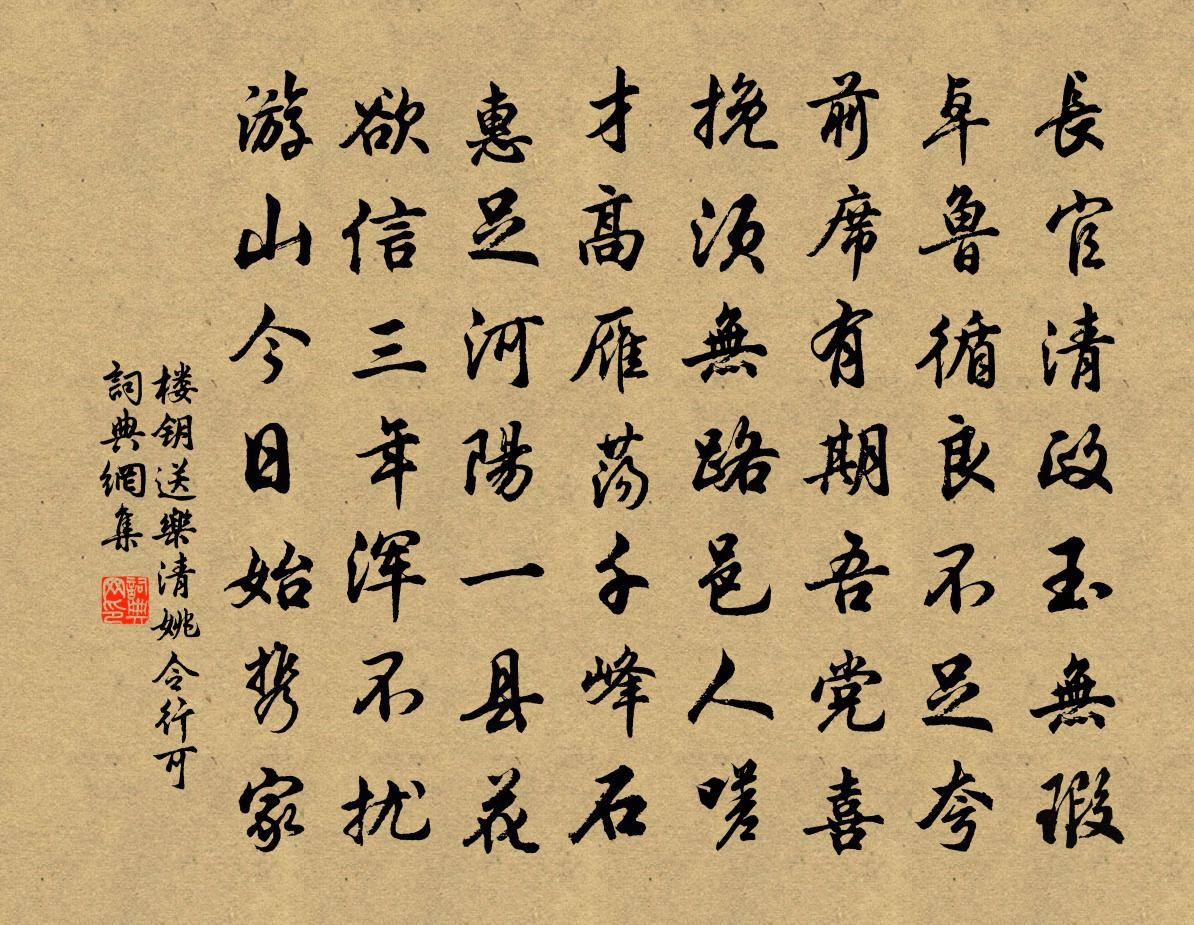 長官清政玉無瑕
卓魯循良不足夸
前席有期吾党喜
挽須無路邑人嗟
才高雁荡千峰石
惠足河陽一县花
欲信三年浑不扰
游山今日始携家
楼钥送樂清姚令行可
詞典網集
詞典网印